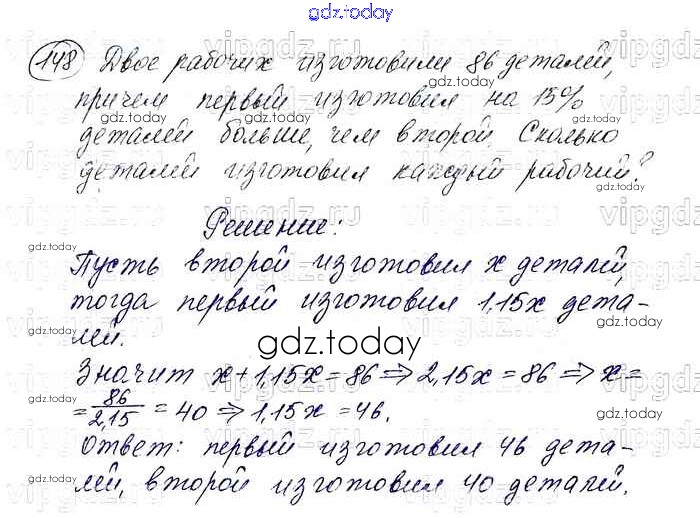 gdz.today
148 Двое рабочих изготовили 86 деталей,
причем первый изготовил на 15%
деталей больше, чем второй. Сколько
деталей изготовил каждый рабочий?
Решение:
Пусть второй изготовил x деталей,
тогда первый изготовил 1,15x дета-
лей.
gdz.today
Значит x + 1,15x = 86 ⇒ 2,15x = 86 ⇒ x =
= 86/2,15 = 40 ⇒ 1,15x = 46.
Ответ: первый изготовил 46 дета-
лей, второй изготовил 40 деталей.